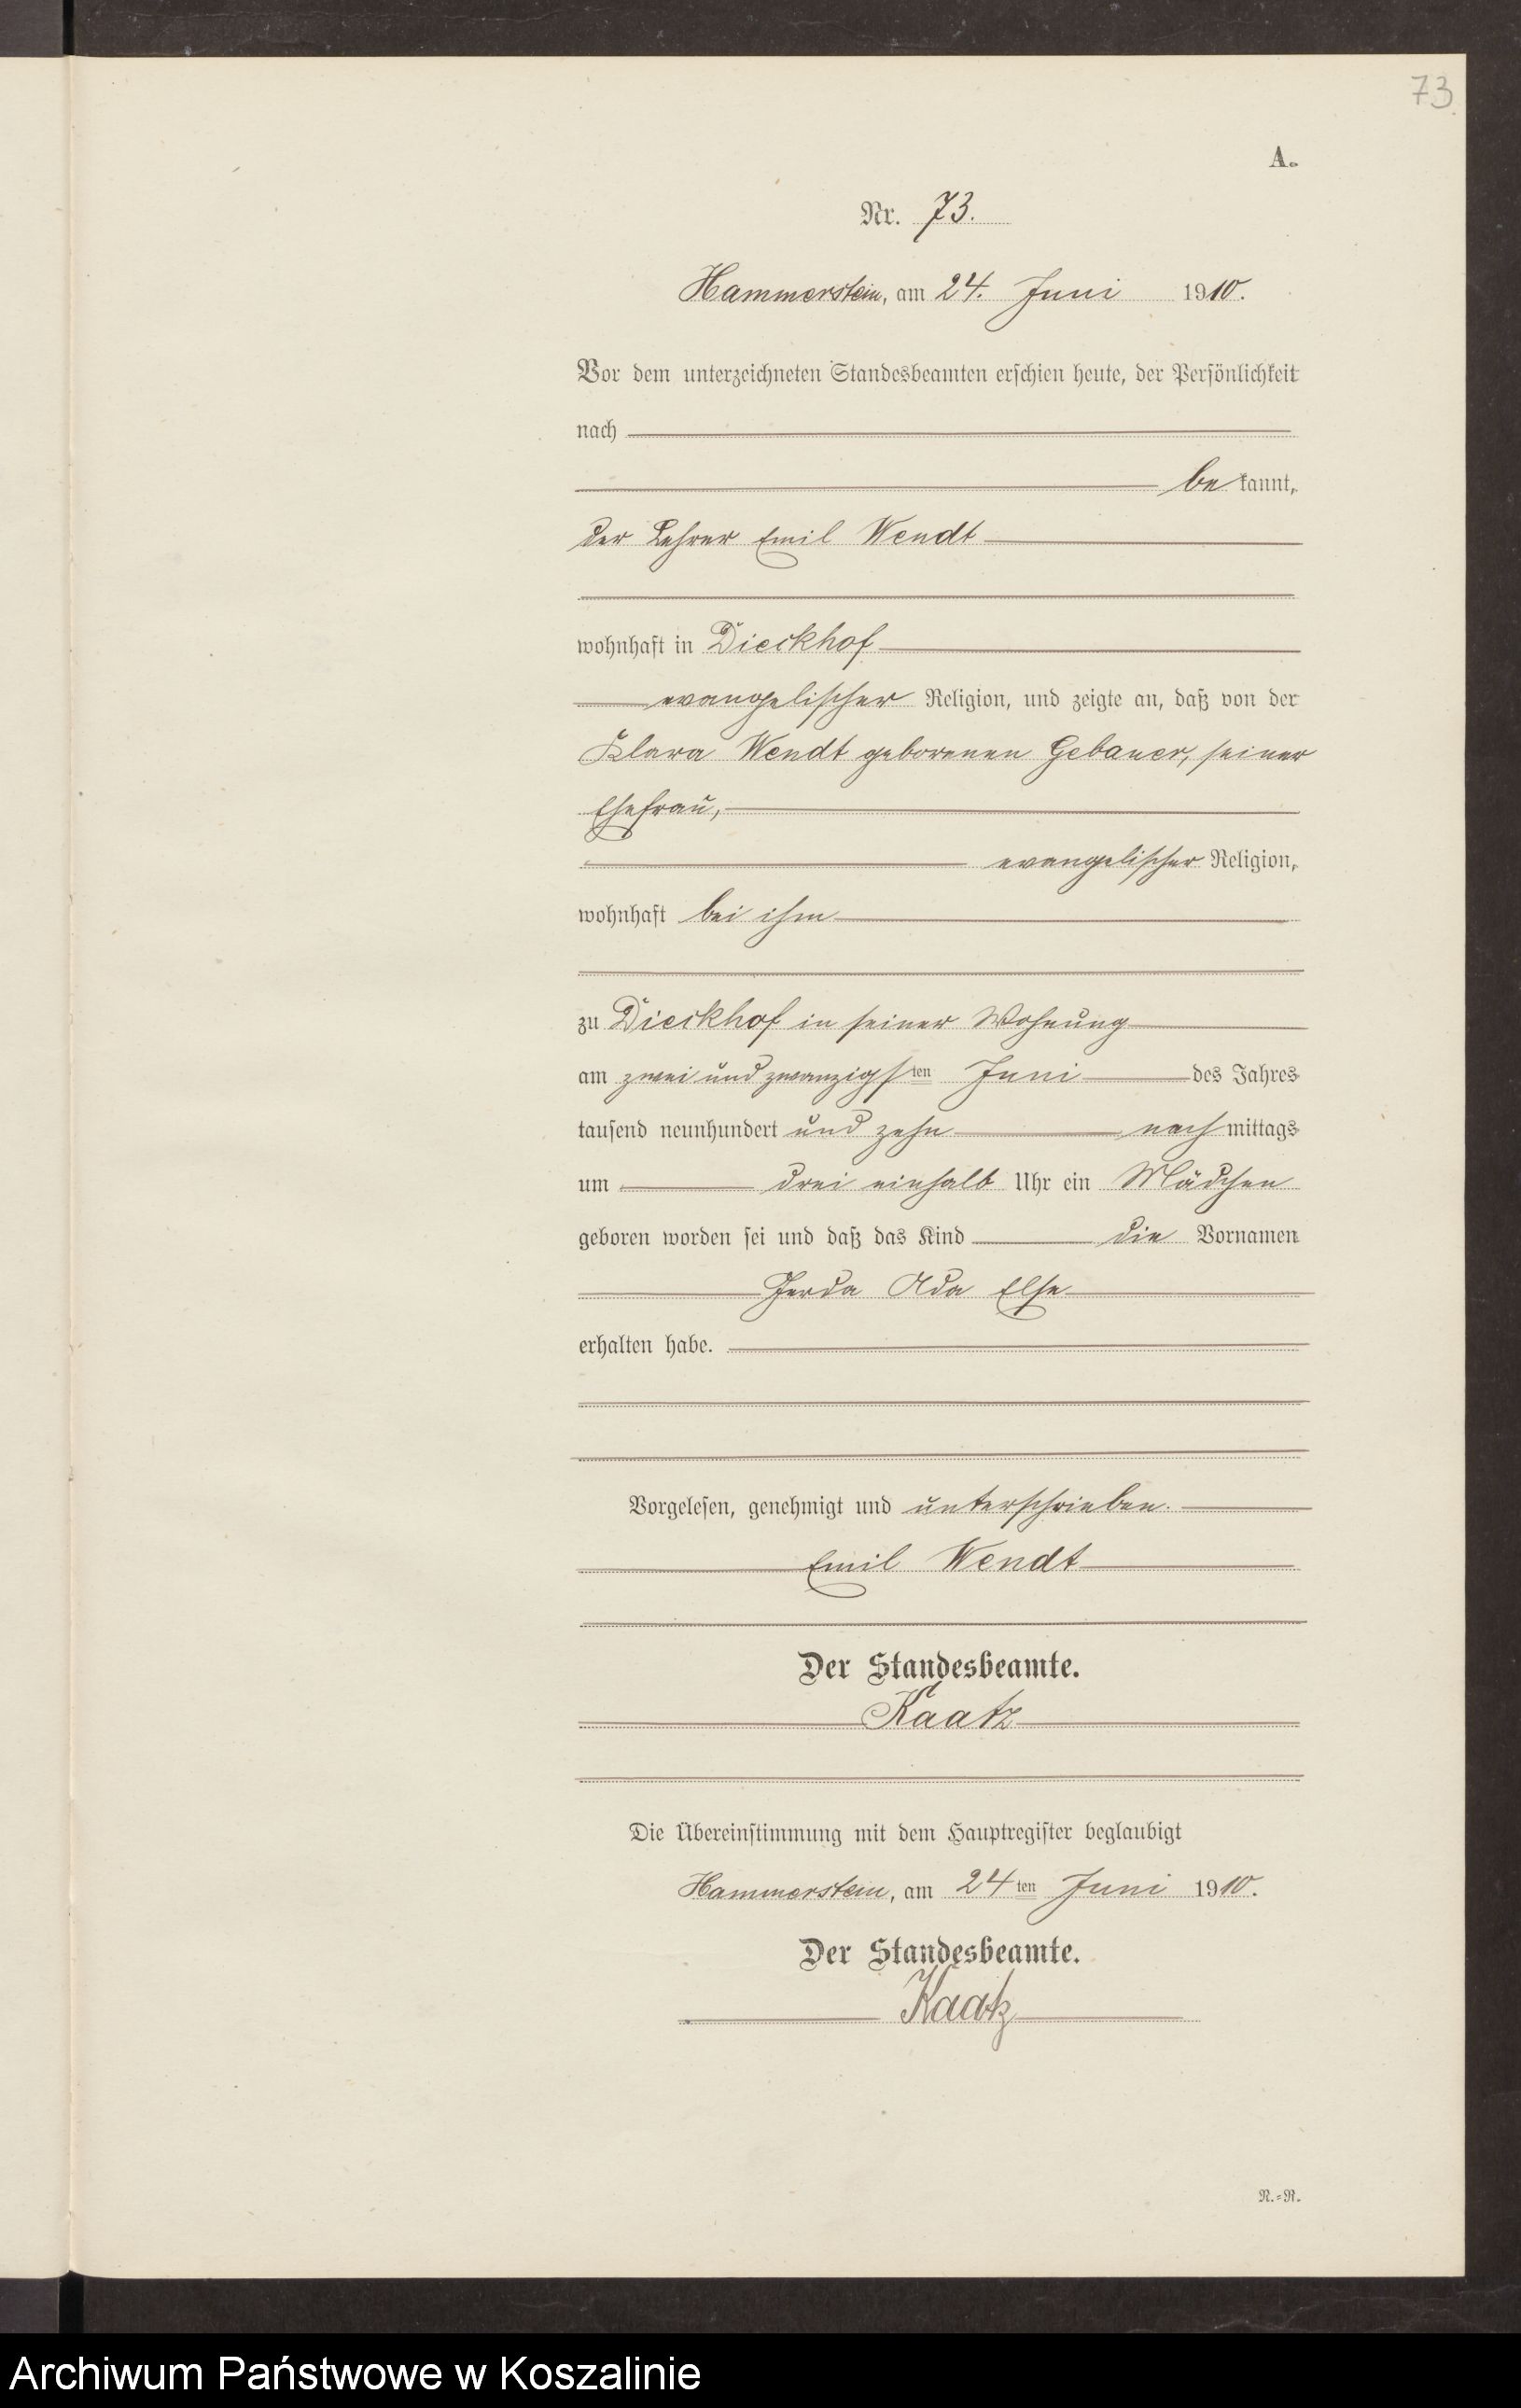 73.
A.
Nr. 73.
Hammerstein, am 24. Juni 1910.
Vor dem unterzeichneten Standesbeamten erschien heute, der Persönlichkeit
nach
be kannt,
der Lehrer Emil Wendt
wohnhaft in Dieckhof
evangelischer Religion, und zeigte an, daß von der
Klara Wendt geborenen Gebauer, seiner
Ehefrau,
evangelischer Religion,
wohnhaft bei ihm
zu Dieckhof in seiner Wohnung
am zwei und zwanzigsten Juni des Jahres
tausend neunhundert und zehn nachmittags
um drei einhalb Uhr ein Mädchen
geboren worden sei und daß das Kind die Vornamen
Gerda Ada Else
erhalten habe.
Vorgelesen, genehmigt und unterschrieben.
Emil Wendt
Der Standesbeamte.
Kaatz
Die Übereinstimmung mit dem Hauptregister beglaubigt
Hammerstein, am 24ten Juni 1910.
Der Standesbeamte.
Kaatz
R.=R.
Archiwum Państwowe w Koszalinie